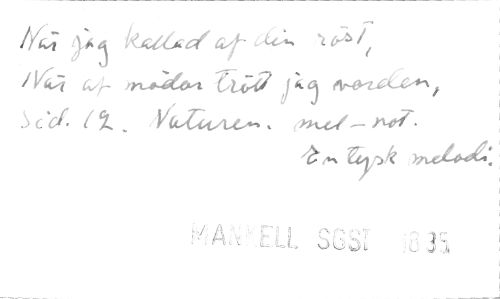 När jag kallad af din röst,
När af mödor trött jag vorden,
Sid. 12. Naturen. mel-not.
En tysk melodi.
MANKELL SGST 1835